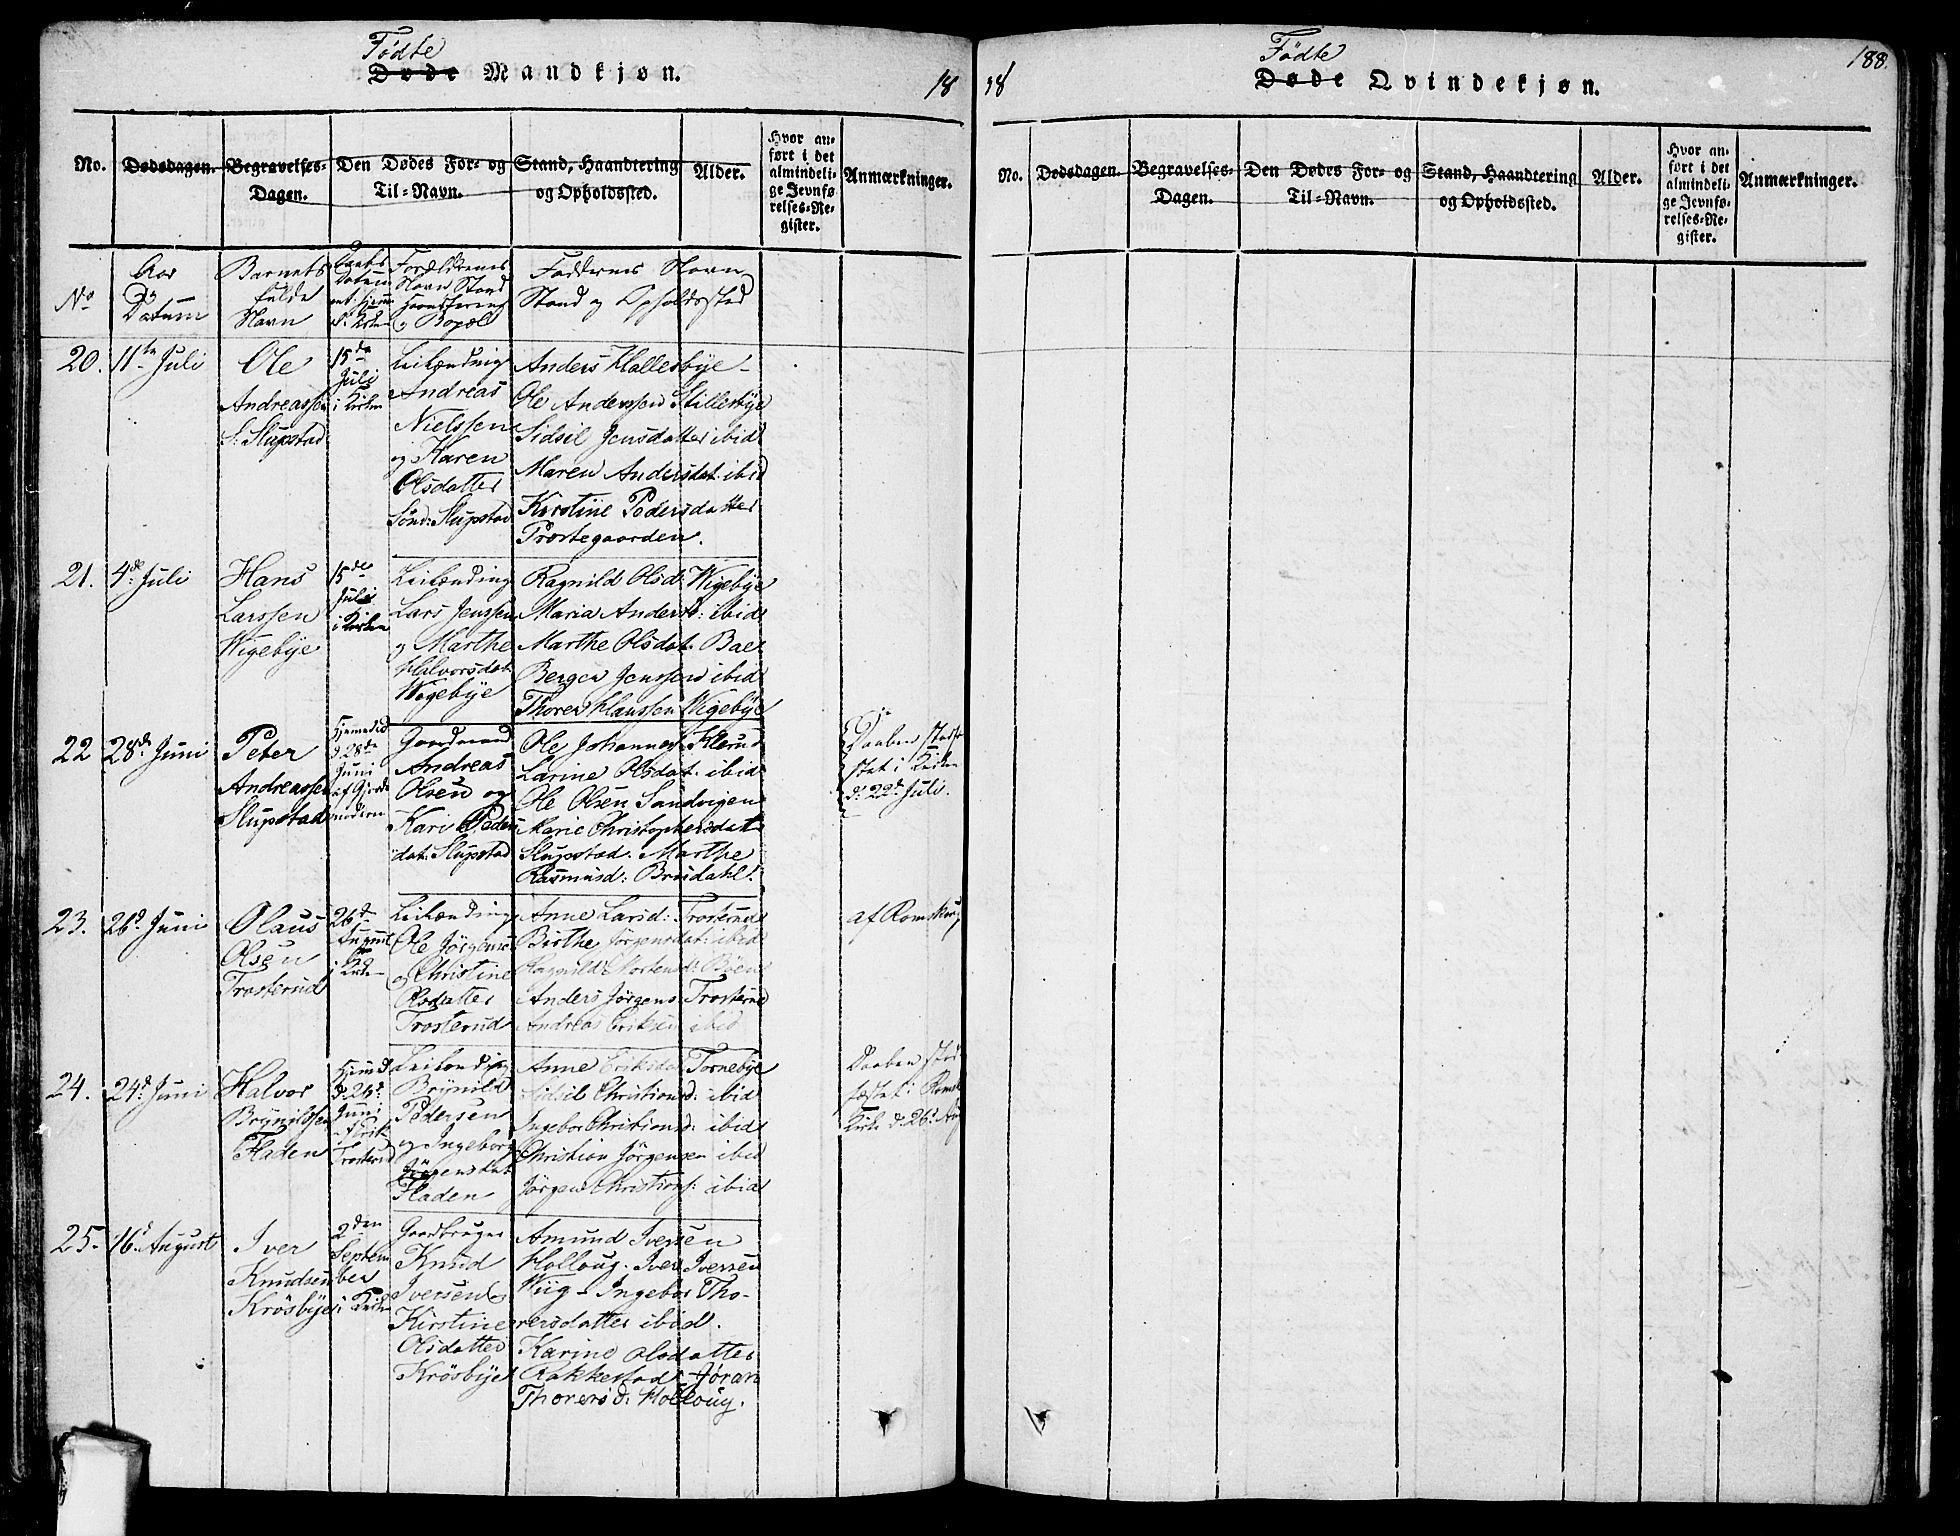 Fødte
Døde Mandkjøn.
18
No.
Dødsdagen.
Begravelses-
Dagen.
Den Dødes For- og
Til-Navn.
Stand, Haandtering
og Opholdssted.
Alder.
Hvor an-
ført i det
almindeli-
ge Jevnfø-
relses-Re-
gister.
Anmærkninger.
No
Aar
og
Datum
Barnets
fulde
Navn
Daabs
Datum
Forældrenes
Navn Stand
Haandtering
og Bopæl
Faddernes Navn
Stand og Opholdssted
20.
11te Juli
Ole
Andreassen
S: Slupstad
15de
Juli
i Kirken
Leilænding
Andreas
Nielssen
og Karen
Olsdatter
Sönd: Slupstad
Anders Hallesbye -
Ole Anderssen Stillesbye
Sidsil Jensdatter ibid
Maren Andersdat: ibid
Kirstine Pedersdatter
Prestegaarden.
21.
4de Juli
Hans
Larssen
Wigebye
15de
Juli
i Kirken
Leilænding
Lars Jenssen
og Marthe
Halvorsdat.
Wigebye
Ragnild Olsd: Wigebye
Maria Andersd: ibid
Marthe Olsdat. Bae
Berger Jenssen ibid
Thorer Hanssen Wigebye
22
28de Juni
Peter
Andreassen
Slupstad
Hjemmedöbt
d. 28de
Juni
af Gjorde
moderen
Gaardmand
Andreas
Olsen og
Kari Peders
dat: Slupstad
Ole Johannes
Larine Olsdat. ibid
Ole Olsen Sandvigen
Marie Christophersdatt
Slupstad. Marthe
Rasmusd: Brudahl.
Daaben stadf
stet i Kirken
d: 22de Juli.
23.
26d Juni
Olaus
Olsen
Trosterud
26d
August
i Kirken
Leilænding
Ole Jörgensen
og Christine
Olsdatter
Trosterud
Anne Larsd: Trosterud
Birthe Jörgensdat: ibid
Ragnild Mortensd: Böen
Anders Jörgens: Trosterud
Andreas Eriksen ibid
af Romskoug
24.
24d Juni
Halvor
Brynildssen
Fladen
Hjemd
d. 26d
Juni
af Erik
Trosterud
Leilænding
Brynild
Pedersen
og Ingeborg
Jörgensdat
Fladen
Anne Eriksdat Tornebye
Sidsil Christiansd: ibid
Ingebor Christiansd: ibid
Christian Jörgensen ibid
Jörgen Christians: ibid
Daaben stad
fæstet i Romsk
Kirke d. 26d Aug
25.
16d August
Iver
Knudsen
Krösbye
2den
Septem
ber
i Kirken
Gaardbruger
Knud
Iversen og
Kirstine
Olsdatter
Krösbye
Amund Iversen
Holloug. Iver Iversen
Wiig - Ingebor Tho-
rersdatter ibid.
Karine Olsdatter
Rakkestad - Jøran
Thorersd: Holloug.
188.
Fødte
18
Døde Qvindekjøn.
No.
Dødsdagen.
Begravelses-
Dagen.
Den Dødes For- og
Til-Navn.
Stand, Haandtering
og Opholdssted.
Alder.
Hvor an-
ført i det
almindeli-
ge Jevnfø-
relses-Re-
gister.
Anmærkninger.